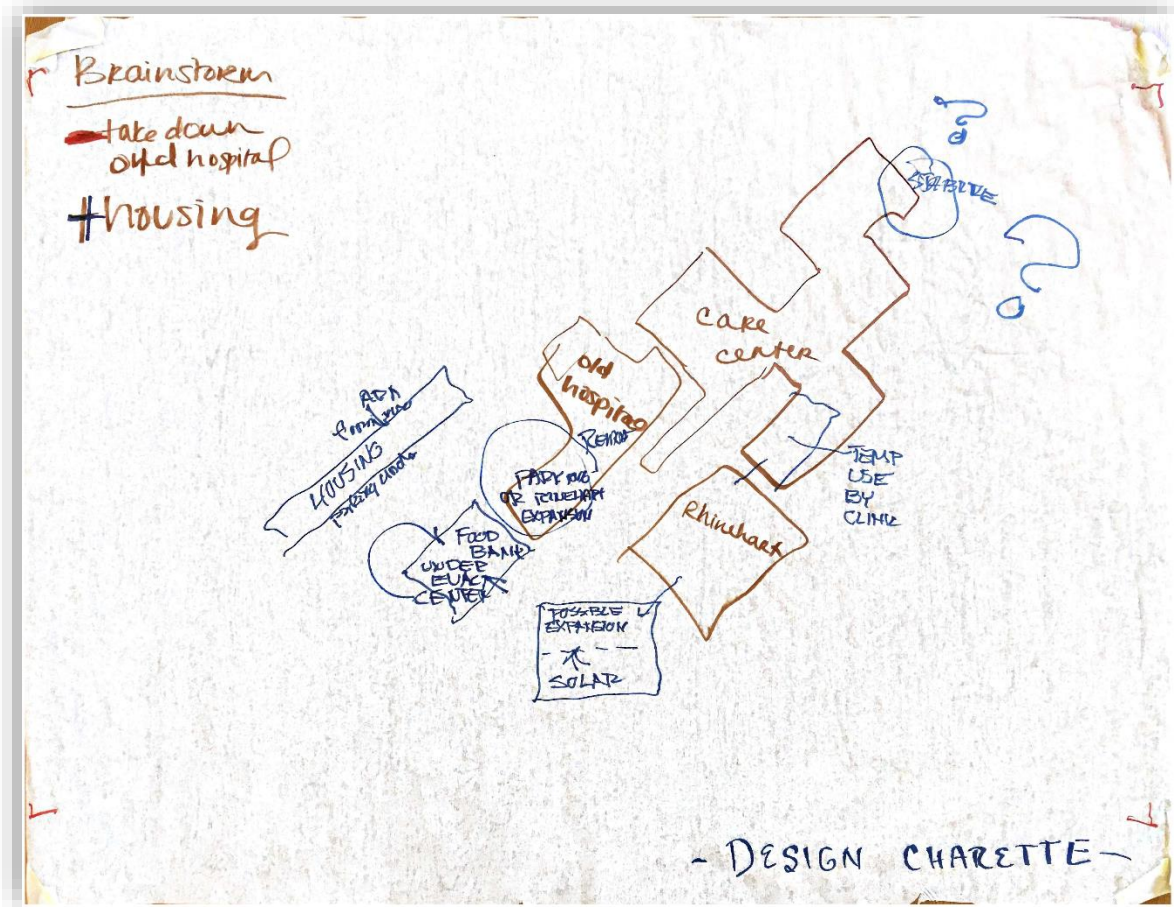 Brainstorm
- take down
old hospital
+ housing
Care
center
old
hospital
ADA
HOUSING
PARKING
OR RINEHART
EXPANSION
FOOD
BANK
UNDER
EVAC
CENTER
Rhinehart
TEMP
USE
BY
CLINIC
POSSIBLE
EXPANSION
SOLAR
- DESIGN CHARETTE -